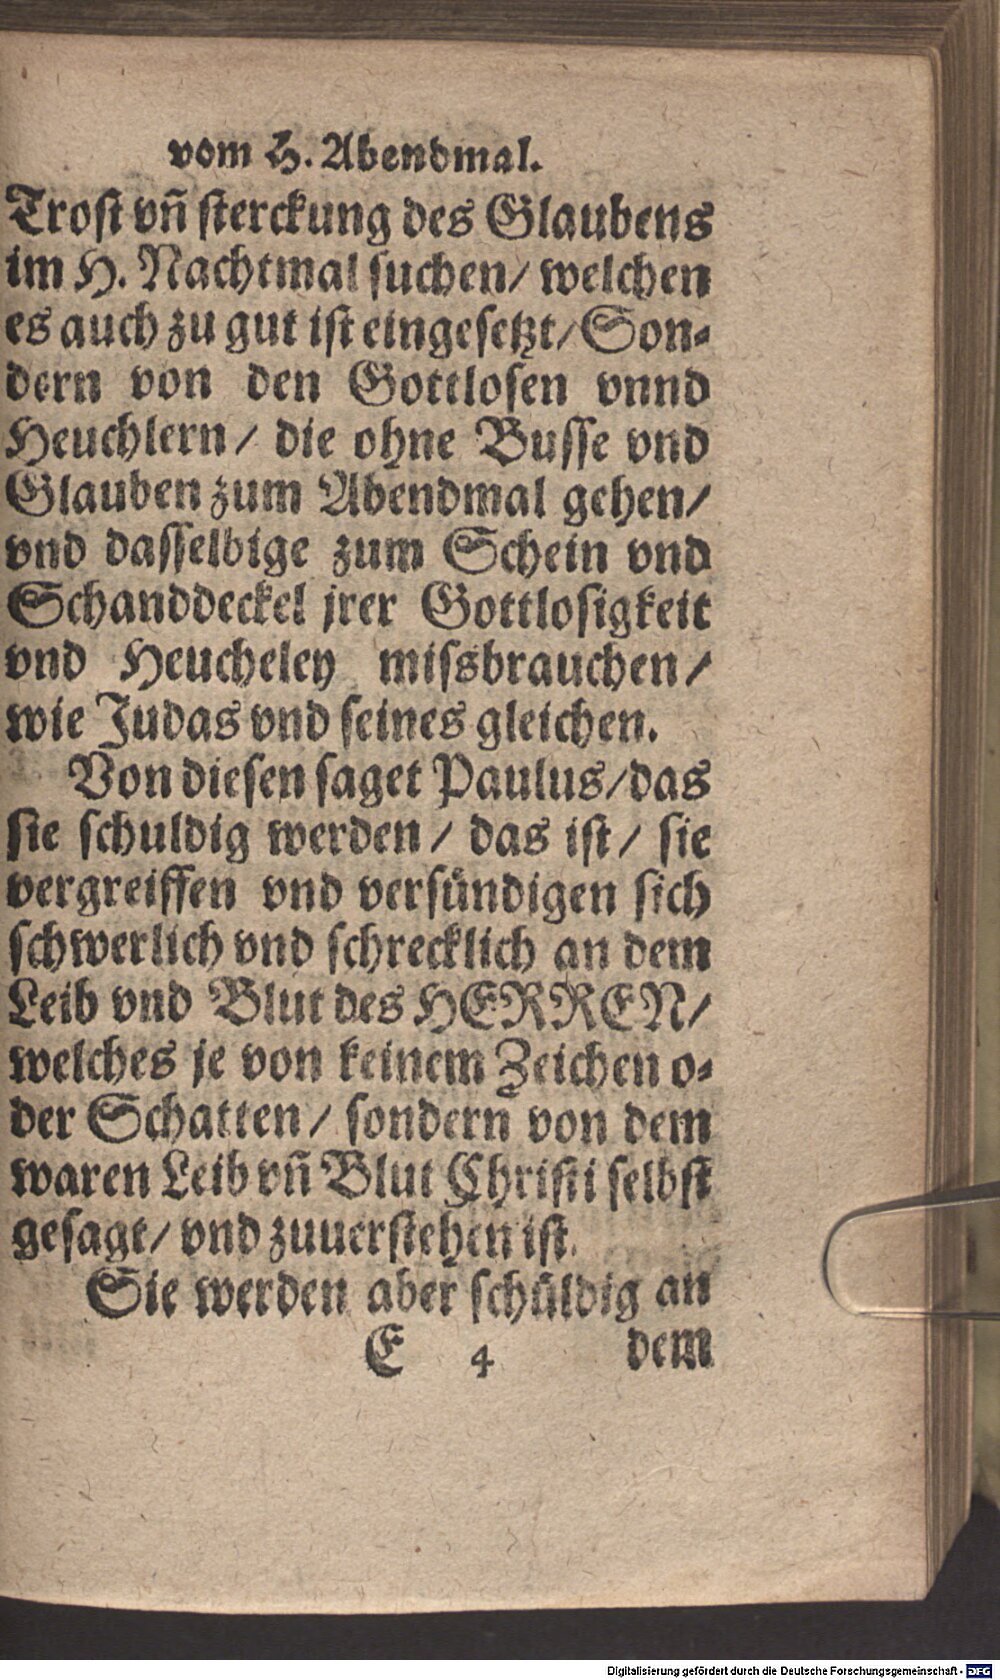 vom H. Abendmal.
Trost vñ sterckung des Glaubens
im H. Nachtmal suchen/ welchen
es auch zu gut ist eingesetzt/ Son-
dern von den Gottlosen vnnd
Heuchlern/ die ohne Busse vnd
Glauben zum Abendmal gehen/
vnd dasselbige zum Schein vnd
Schanddeckel jrer Gottlosigkeit
vnd Heucheley missbrauchen/
wie Judas vnd seines gleichen.
Von diesen saget Paulus/ das
sie schuldig werden/ das ist/ sie
vergreiffen vnd versündigen sich
schwerlich vnd schrecklich an dem
Leib vnd Blut des HERREN/
welches je von keinem Zeichen o-
der Schatten/ sondern von dem
waren Leib vñ Blut Christi selbst
gesagt/ vnd zuuerstehen ist.
Sie werden aber schüldig an
E 4 dem
Digitalisierung gefördert durch die Deutsche Forschungsgemeinschaft - DFG